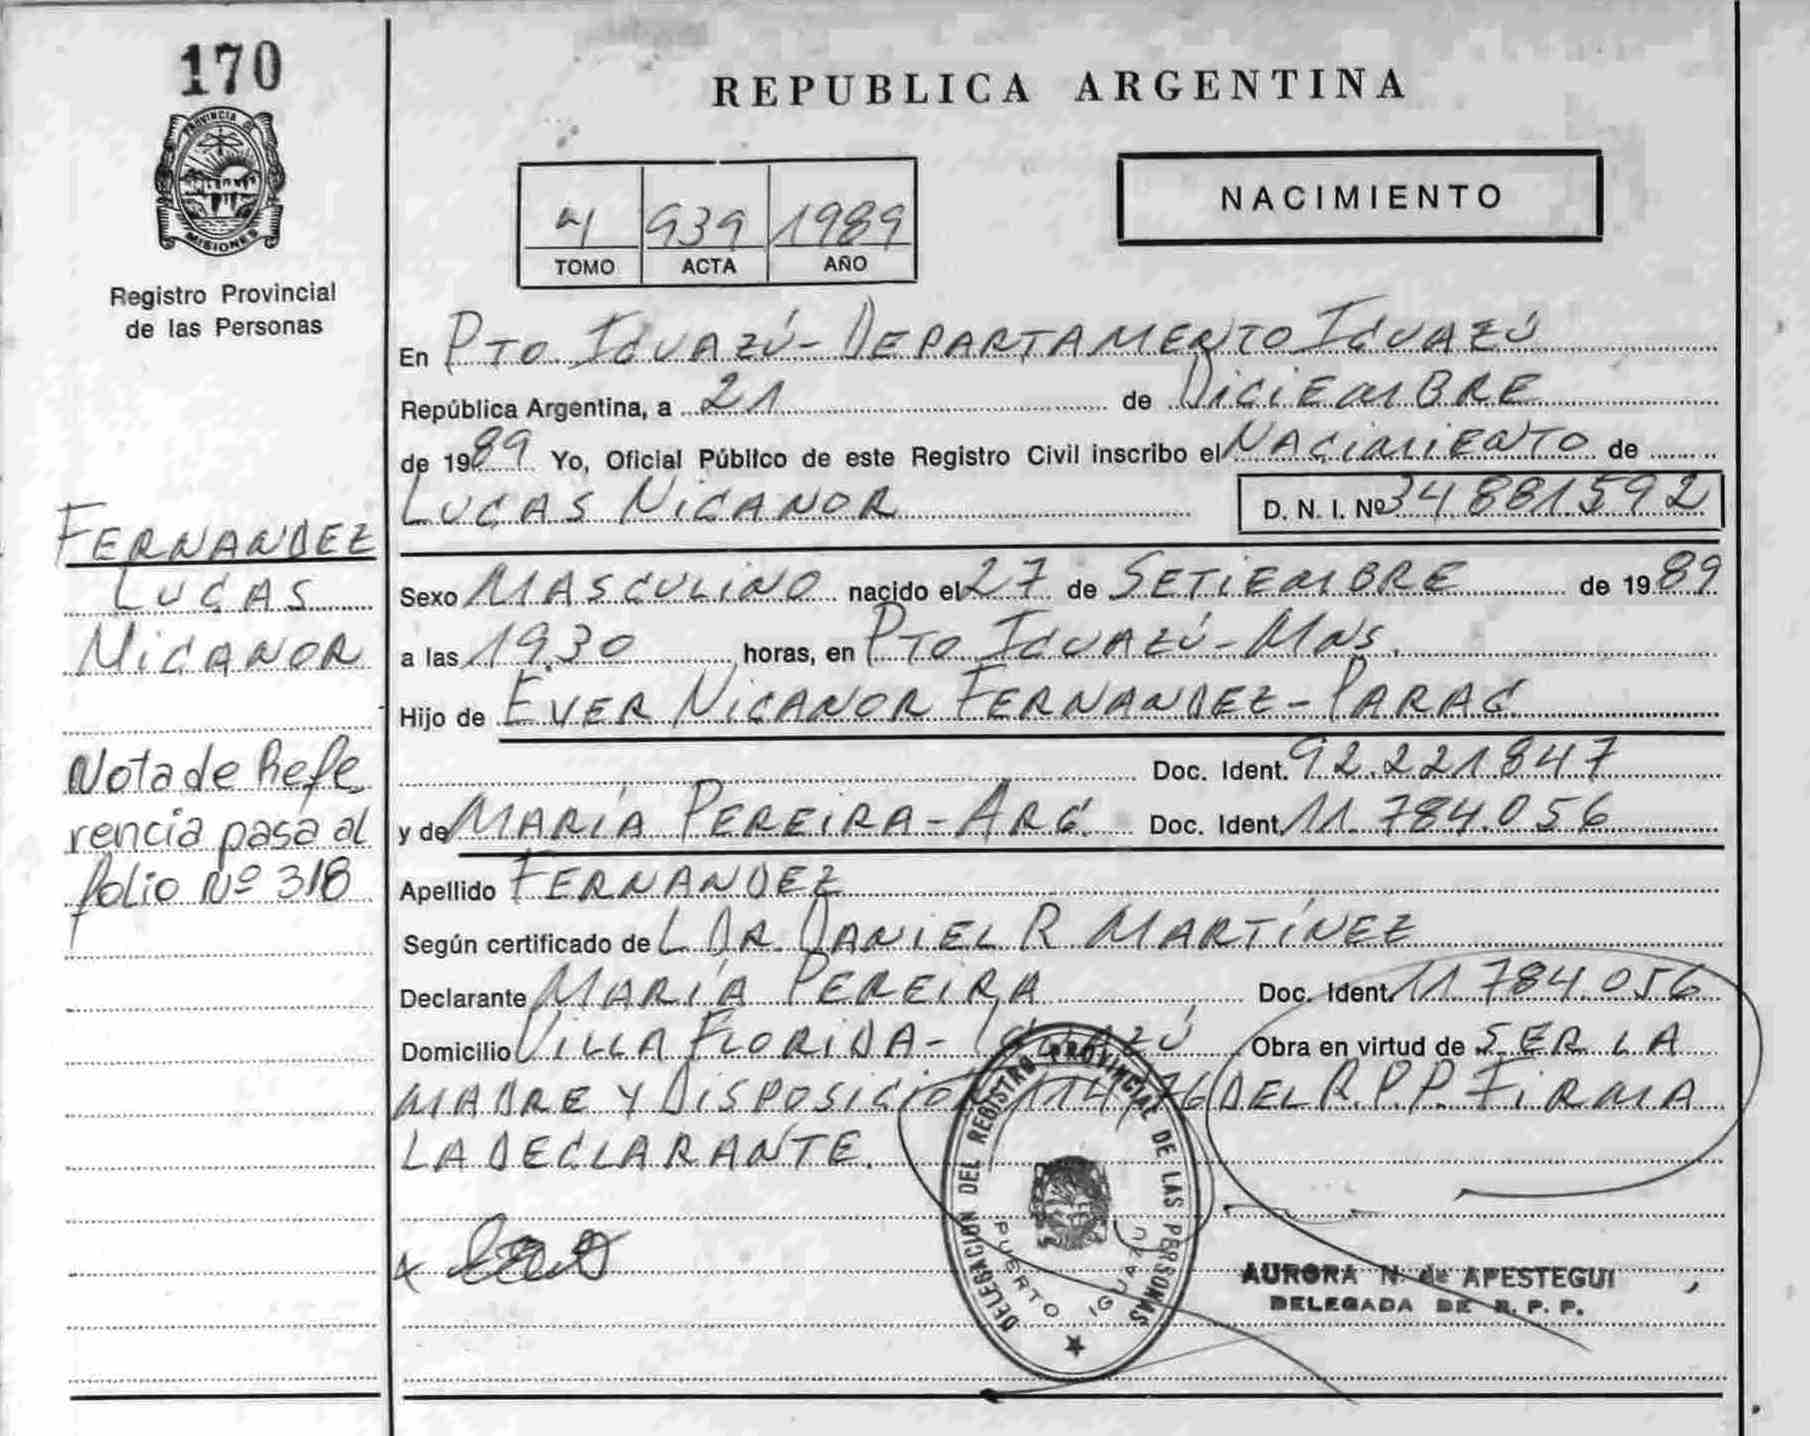 170
PROVINCIA DE
MISIONES
Registro Provincial
de las Personas
FERNANDEZ
LUCAS
NICANOR
Nota de Refe
rencia pasa al
folio Nº 318
REPUBLICA ARGENTINA
NACIMIENTO
4 939 1989
TOMO ACTA AÑO
En PTO. IGUAZÚ - DEPARTAMENTO IGUAZÚ
República Argentina, a 21 de DICIEMBRE
de 1989 Yo, Oficial Público de este Registro Civil inscribo el NACIMIENTO de
LUCAS NICANOR D. N. I. Nº 34881592
Sexo MASCULINO nacido el 27 de SETIEMBRE de 1989
a las 19.30 horas, en PTO IGUAZÚ - MNS.
Hijo de EVER NICANOR FERNANDEZ - PARAG
Doc. Ident. 92.221847
y de MARÍA PEREIRA - ARG. Doc. Ident. 11.784.056
Apellido FERNANDEZ
Según certificado de L DR. DANIEL R MARTÍNEZ
Declarante MARÍA PEREIRA Doc. Ident. 11.784.056
Domicilio VILLA FLORIDA - IGUAZÚ Obra en virtud de SER LA
MADRE Y DISPOSICIÓN 114/76 DEL R.P.P. FIRMA
LA DECLARANTE.
DELEGACION DEL REGISTRO PROVINCIAL DE LAS PERSONAS
PUERTO IGUAZU
AURORA N. de APESTEGUI
DELEGADA DE R. P. P.